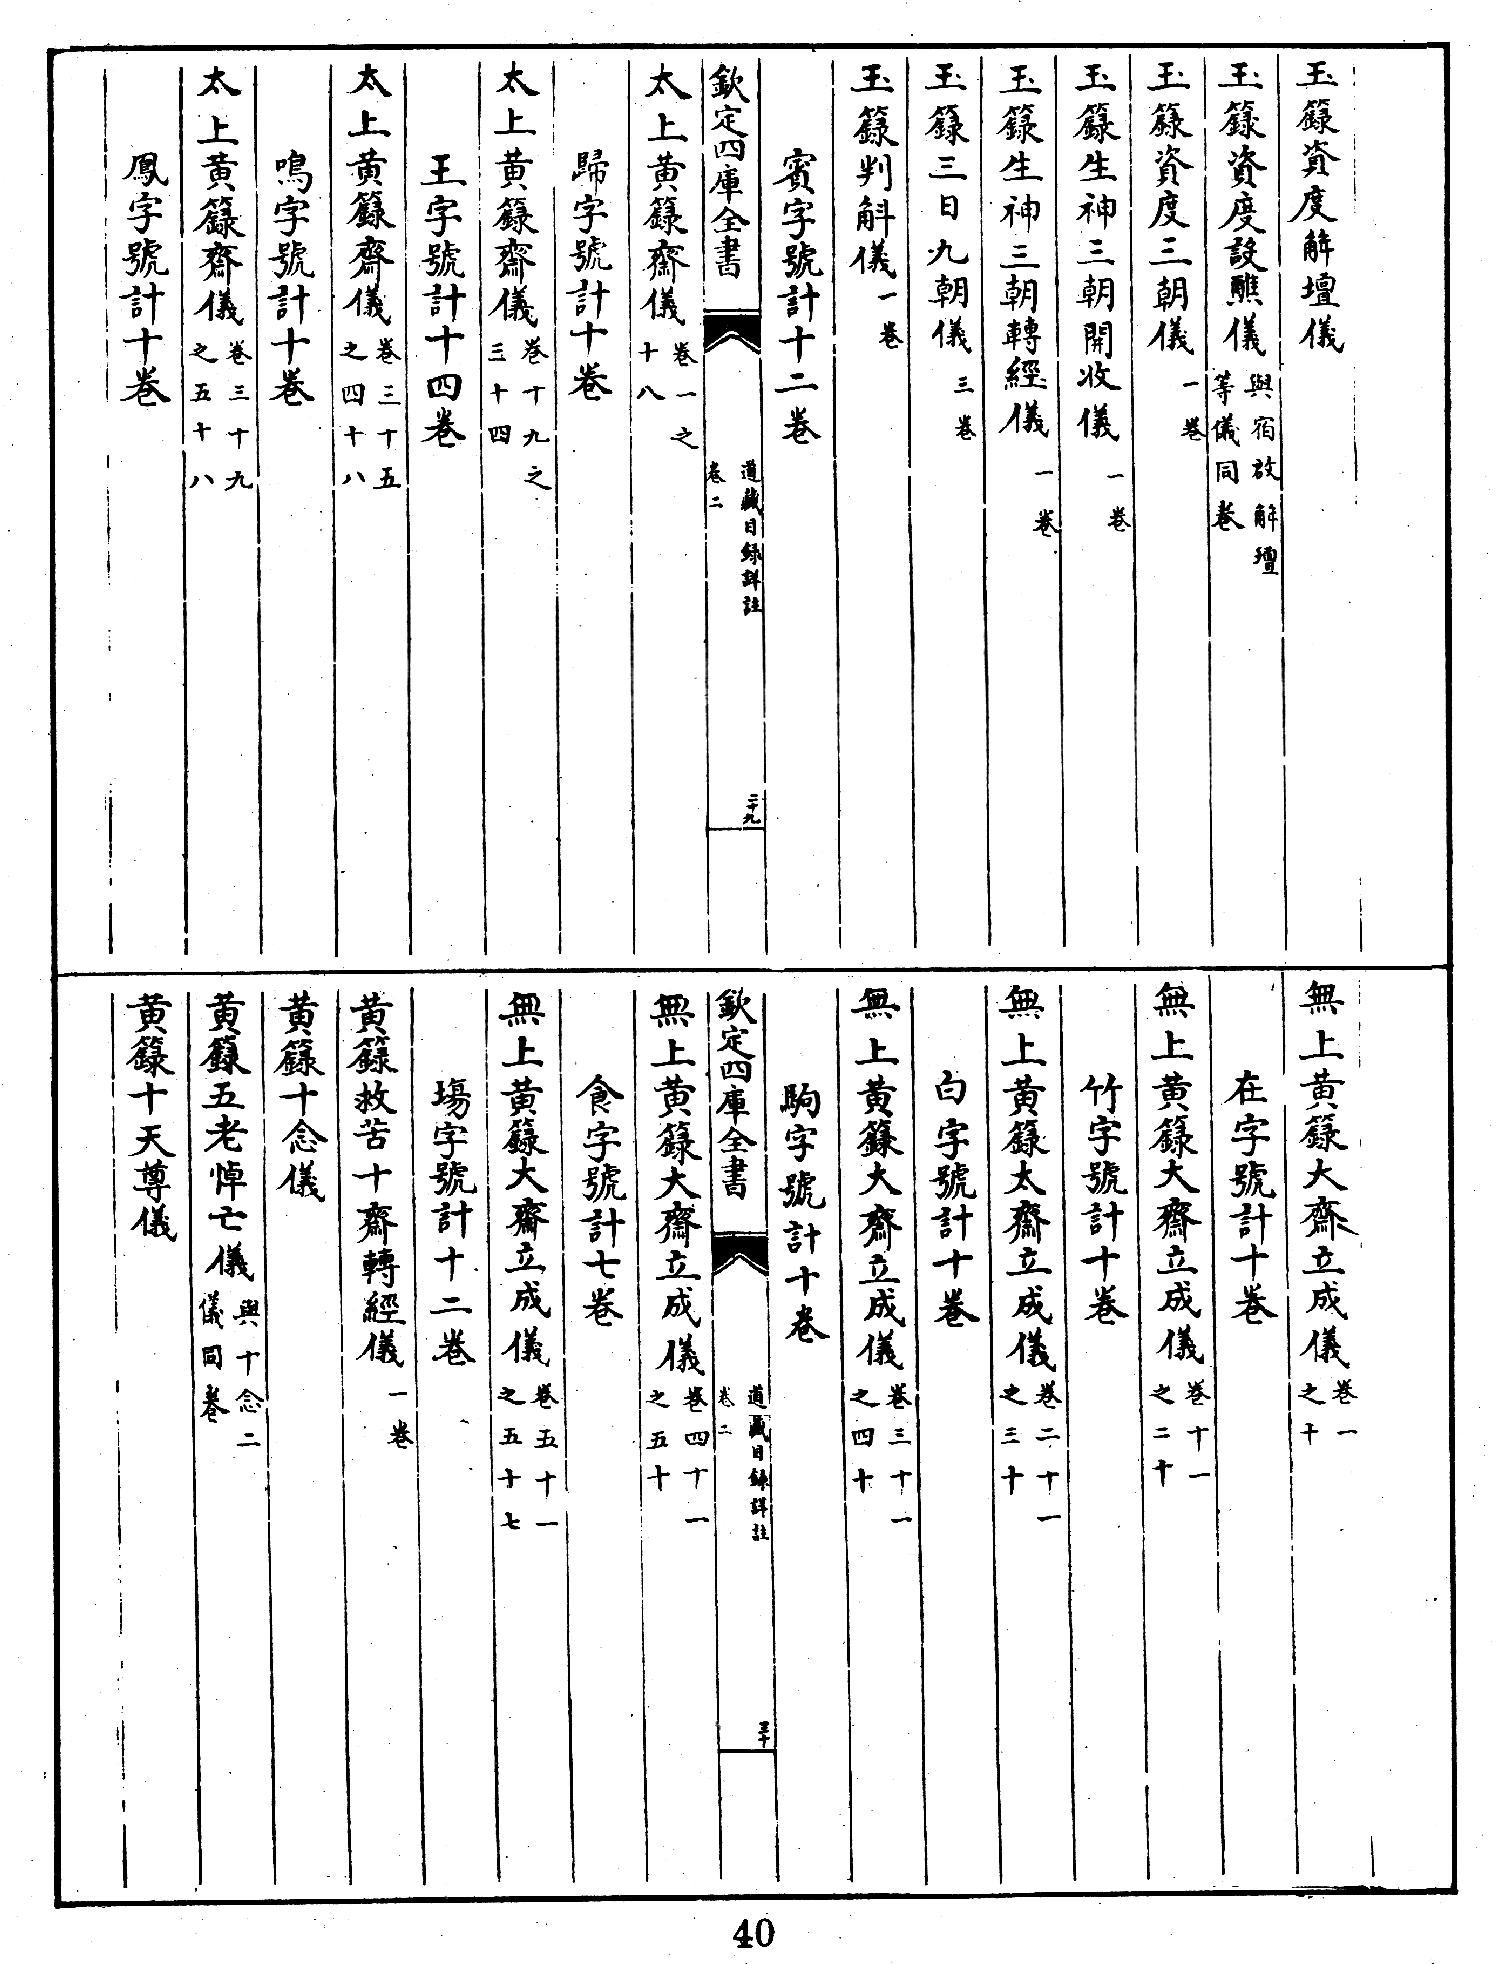 玉籙資度解壇儀
玉籙資度設醮儀與宿啟解壇等儀同卷
玉籙資度三朝儀一卷
玉籙生神三朝開收儀一卷
玉籙生神三朝轉經儀一卷
玉籙三日九朝儀三卷
玉籙判斛儀一卷
賓字號計十二卷
欽定四庫全書
道藏目録詳註
卷二
二十九
太上黄籙齋儀卷一之十八
歸字號計十卷
太上黄籙齋儀卷十九之三十四
王字號計十四卷
太上黄籙齋儀卷三十五之四十八
鳴字號計十卷
太上黄籙齋儀卷三十九之五十八
鳳字號計十卷
無上黄籙大齋立成儀卷一之十
在字號計十卷
無上黄籙大齋立成儀卷十一之二十
竹字號計十卷
無上黄籙太齋立成儀卷二十一之三十
白字號計十卷
無上黄籙大齋立成儀卷三十一之四十
駒字號計十卷
欽定四庫全書
道藏目録詳註
卷二
三十
無上黄籙大齋立成儀卷四十一之五十
食字號計七卷
無上黄籙大齋立成儀卷五十一之五十七
塲字號計十二卷
黄籙救苦十齋轉經儀一卷
黄籙十念儀
黄籙五老悼亡儀與十念二儀同卷
黄籙十天尊儀
40